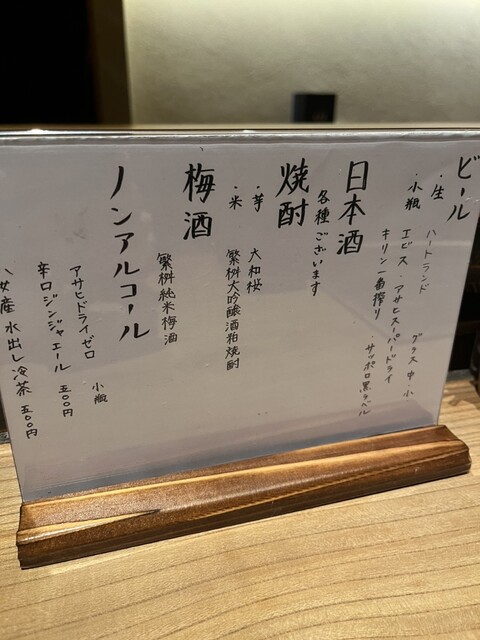 ビール
・生 ハートランド グラス 中・小
・小瓶 エビス・アサヒスーパードライ
キリン一番搾り サッポロ黒ラベル
日本酒
各種ございます
焼酎
・芋 大和桜
・米 繁桝大吟醸酒粕焼酎
梅酒
繁桝純米梅酒
ノンアルコール
アサヒドライゼロ 小瓶
辛口ジンジャエール 五〇〇円
八女産 水出し冷茶 五〇〇円